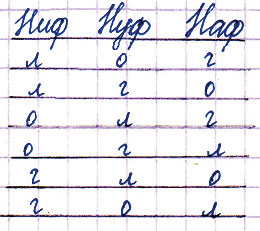 Ниф Нуф Наф
л о г
л г о
о л г
о г л
г л о
г о л